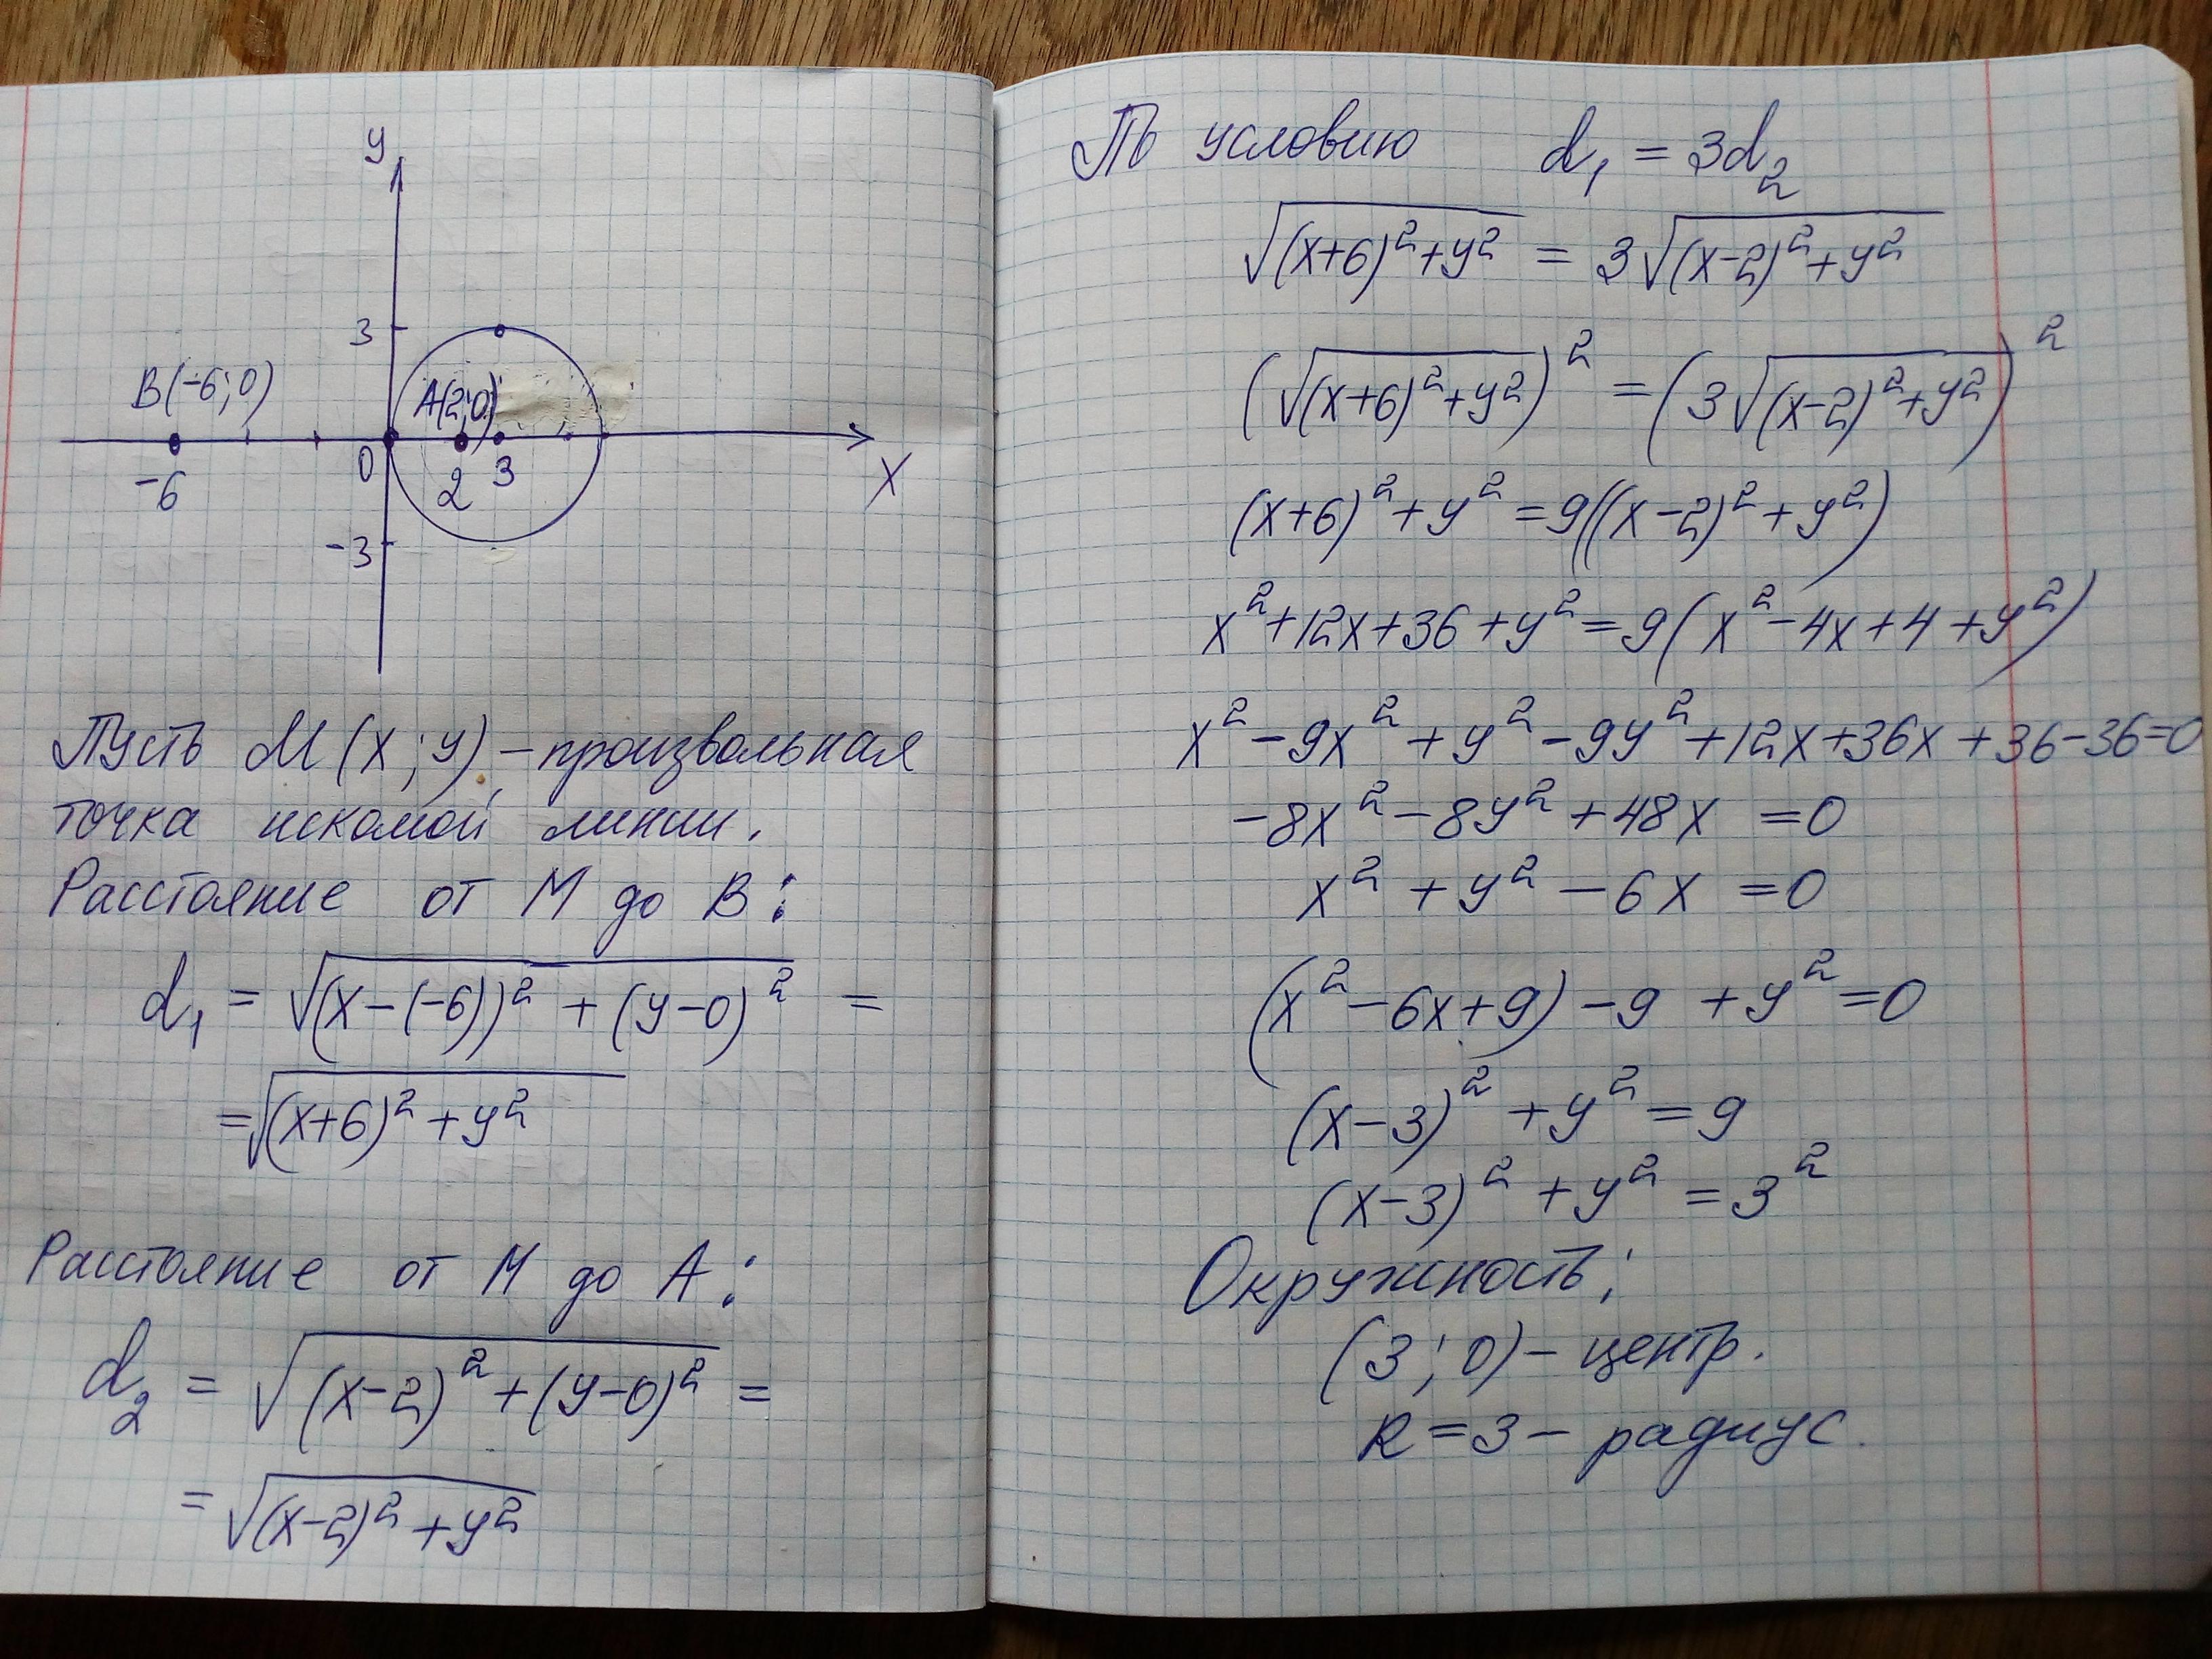 y
3
B(-6;0)
A(2;0)
0
-6
2
3
X
-3
Пусть M(x;y) – произвольная
точка искомой линии.
Расстояние от M до B:
d₁ = √((x-(-6))² + (y-0)²) =
= √((x+6)² + y²)
Расстояние от M до A:
d₂ = √((x-2)² + (y-0)²) =
= √((x-2)² + y²)
По условию d₁ = 3d₂
√((x+6)² + y²) = 3√((x-2)² + y²)
(√((x+6)² + y²))² = (3√((x-2)² + y²))²
(x+6)² + y² = 9((x-2)² + y²)
x² + 12x + 36 + y² = 9(x² - 4x + 4 + y²)
x² - 9x² + y² - 9y² + 12x + 36x + 36 - 36 = 0
-8x² - 8y² + 48x = 0
x² + y² - 6x = 0
(x² - 6x + 9) - 9 + y² = 0
(x-3)² + y² = 9
(x-3)² + y² = 3²
Окружность;
(3;0) – центр.
R = 3 – радиус.